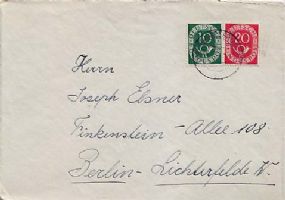 10 20
Herrn
Joseph Elsner
Finkenstein-Allee 108
Berlin-Lichterfelde W.